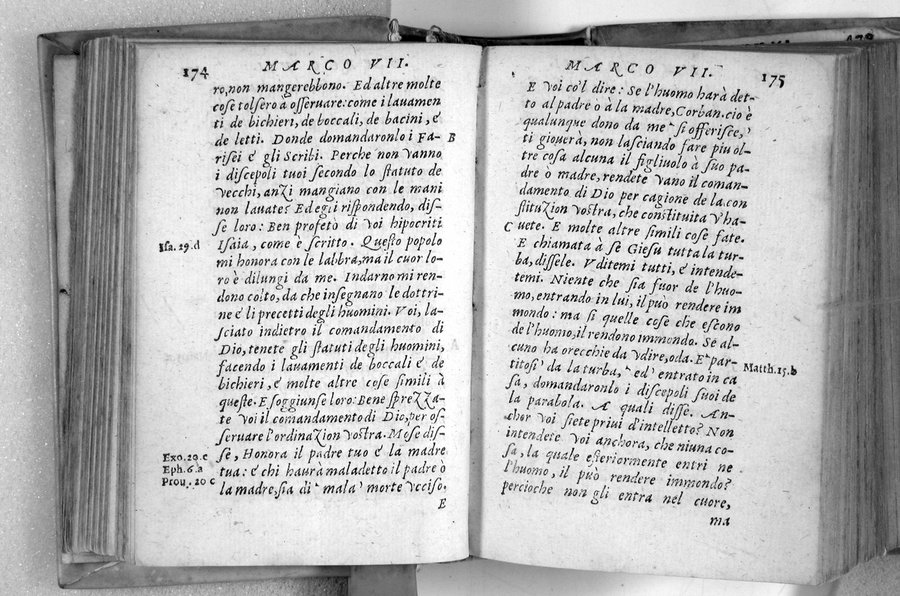 174
MARCO VII.
ro, non mangerebbono. Ed altre molte
cose tolsero a osseruare: come i lauamen
ti de bichieri, de boccali, de bacini, é
de letti. Donde domandaronlo i Fa-
B
risei é gli Scribi. Perche non vanno
i discepoli tuoi secondo lo statuto de
vecchi, anzi mangiano con le mani
non lauate? Ed egli rispondendo, dis-
se loro: Ben profetò di voi hipocriti
Isa. 29.d
Isaia, come è scritto. Questo popolo
mi honora con le labbra, ma il cuor lo-
ro è dilungi da me. Indarno mi ren-
dono colto, da che insegnano le dottri-
ne é li precetti degli huomini. Voi, la-
sciato indietro il comandamento di
Dio, tenete gli statuti degli huomini,
facendo i lauamenti de boccali é de
bichieri, é molte altre cose simili à
queste. E soggiunse loro: Bene sprezza-
te voi il comandamento di Dio, per os-
seruare l'ordinazion vostra. Mose dis-
Exo. 20.c
se, Honora il padre tuo é la madre
Eph. 6.a
tua: é chi haurà maladetto il padre ò
Prou. 20 c
la madre, sia di mala morte vcciso.
E
MARCO VII.
175
E voi co'l dire: Se l'huomo harà det-
to al padre ò à la madre, Corban. cio è
qualunque dono da me si offerisce,
ti giouerà, non lasciando fare piu ol-
tre cosa alcuna il figliuolo à suo pa-
dre ò madre, rendete vano il coman-
damento di Dio per cagione de la con
stituzion vostra, che constituita v'ha-
C
uete. E molte altre simili cose fate.
E chiamata à se Giesu tutta la tur-
ba, dissele. Vditemi tutti, é intende-
temi. Niente che sia fuor de l'huo-
mo, entrando in lui, il può rendere im
mondo: ma si quelle cose che escono
de l'huomo, il rendono immondo. Se al-
cuno ha orecchie da vdire, oda. E par-
Matth. 15.b
titosi da la turba, ed entrato in ca
sa, domandaronlo i discepoli suoi de
la parabola. A quali disse. An-
chor voi siete priui d'intelletto? Non
intendete voi anchora, che niuna co-
sa, la quale esteriormente entri ne
l'huomo, il può rendere immondo?
percioche non gli entra nel cuore,
ma